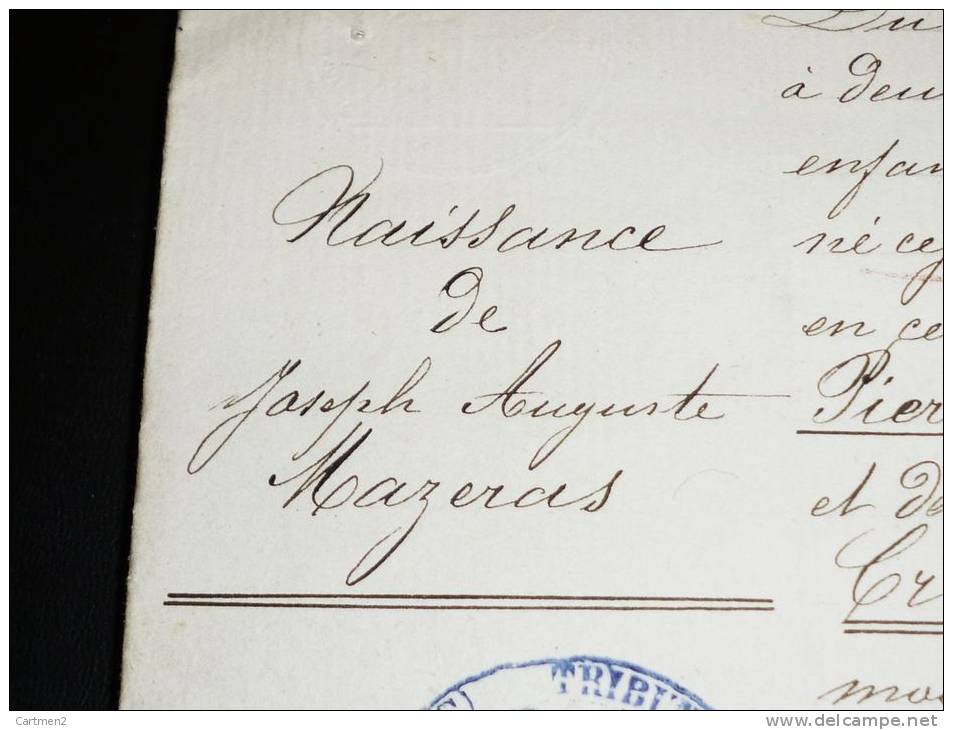 Naissance
de
Joseph Auguste
Mazeras
Du
à deu
enfan
né ce
en ce
Pier
et de
Cr
mo
TRIBU
Cartmen2
www.delcampe.net